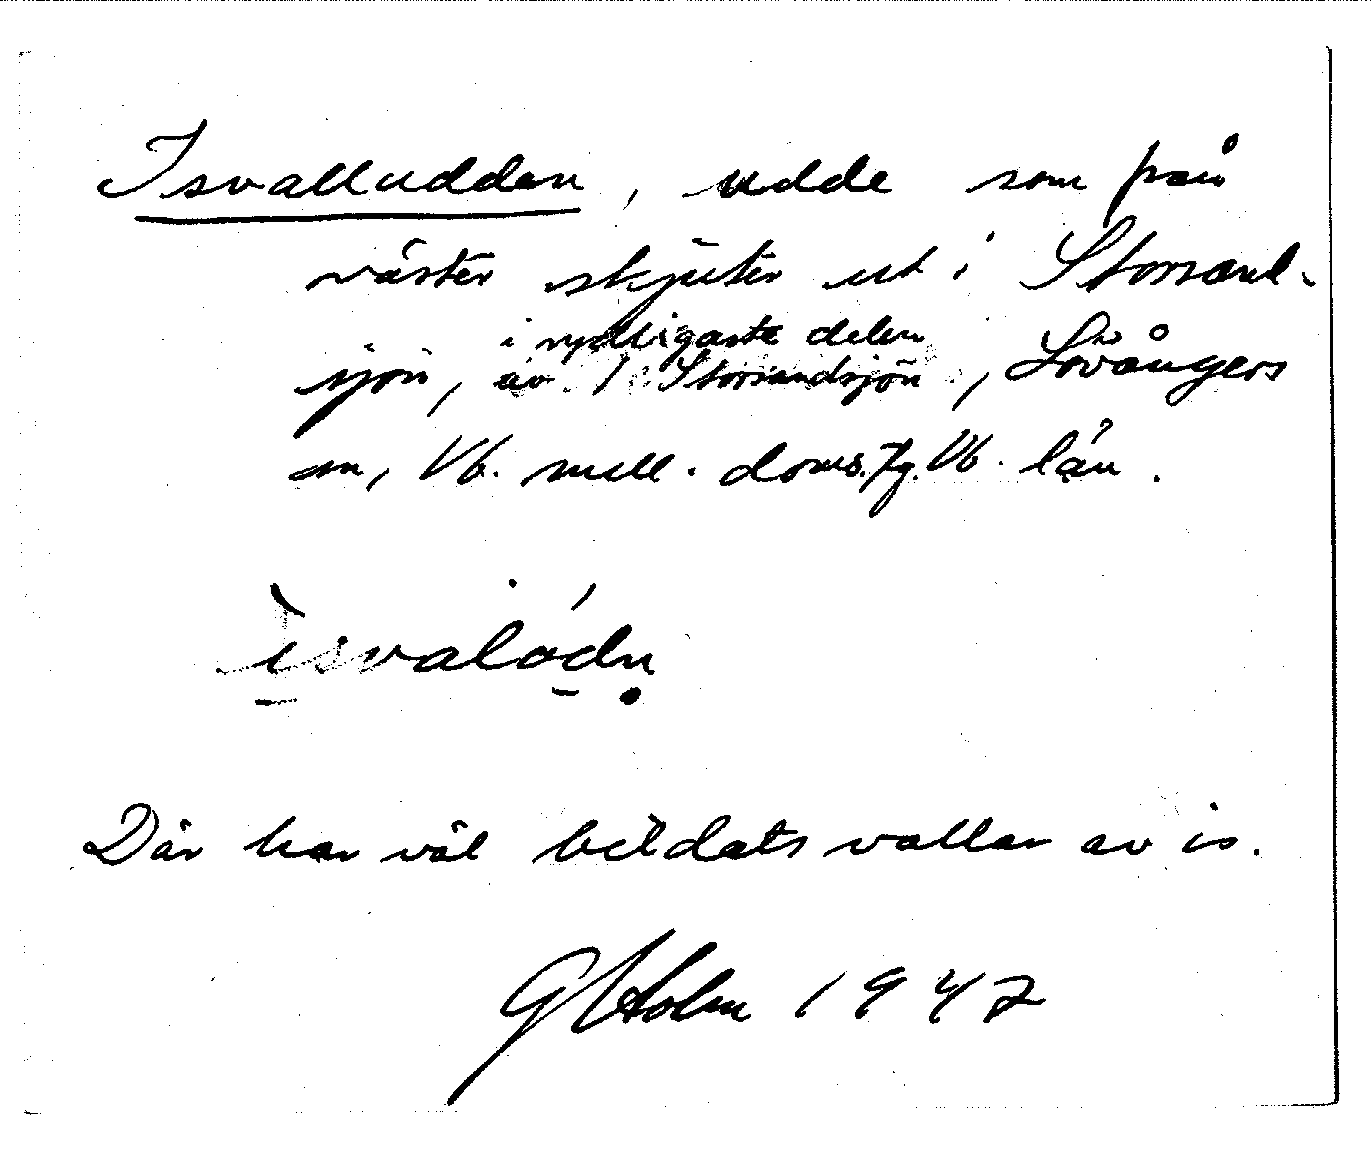 Isvalludden, udde som från
väster skjuter ut i Storsand-
sjön, i sydligaste delen av Storsandsjön, Lövångers
sn, Vb. mell. doms. tg. Vb. län.
isvalodn
Där har väl bildats vallar av is.
G Holm 1947